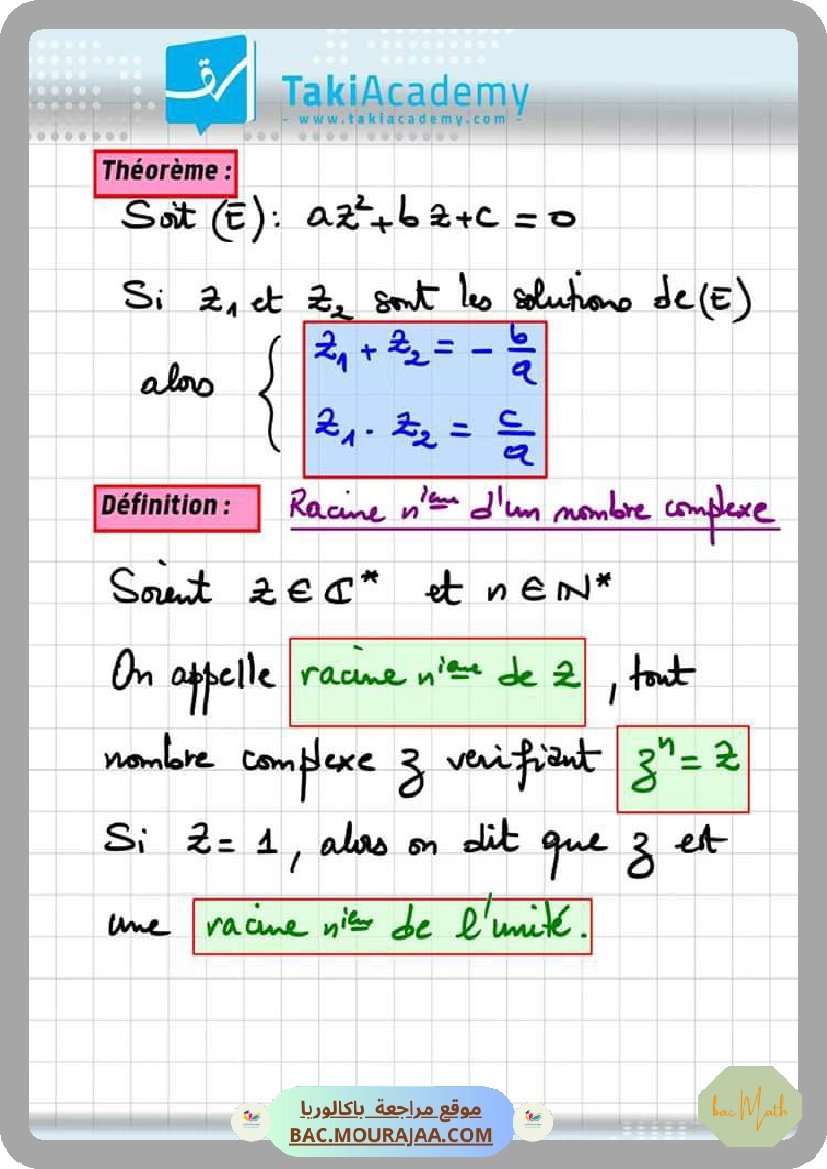 TakiAcademy
- www.takiacademy.com -
Théorème :
Soit (E): az²+bz+c = 0
Si z₁ et z₂ sont les solutions de (E)
alors { z₁ + z₂ = - b/a
z₁ . z₂ = c/a
Définition : Racine nième d'un nombre complexe
Soient Z ∈ ℂ* et n ∈ ℕ*
On appelle racine nième de Z , tout
nombre complexe z verifiant zⁿ = Z
Si Z = 1 , alors on dit que z est
une racine nième de l'unité.
موقع مراجعة باكالوريا
BAC.MOURAJAA.COM
bac Math